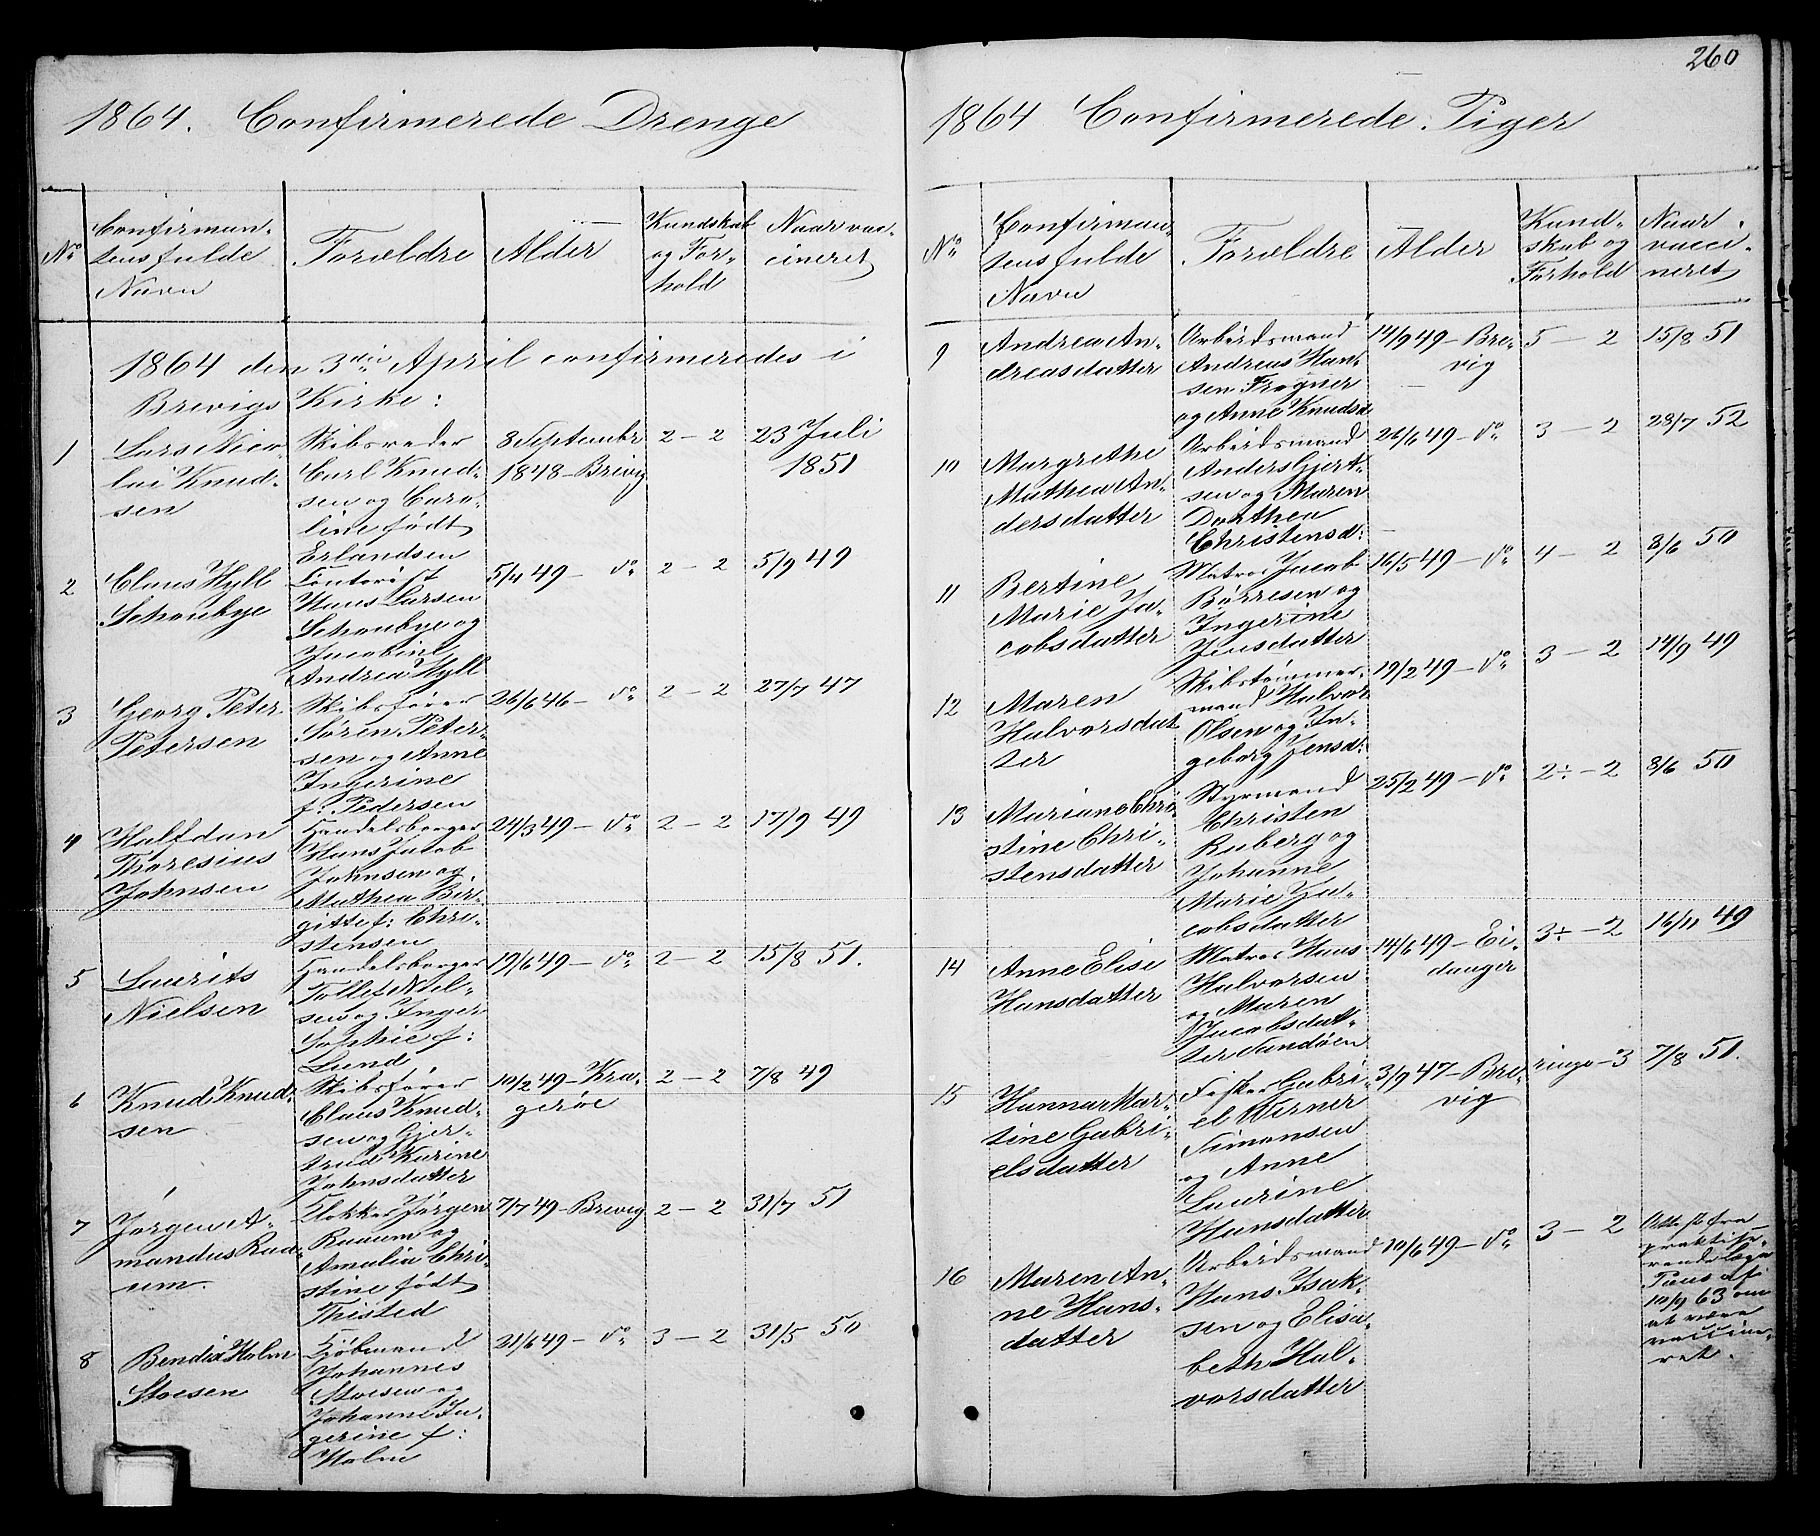 260
1864. Confirmerede Drenge
No
Confirman-
tens fulde
Navn
Forældre
Alder
Kundskab
og For-
hold
Naar vac-
cineret
1864 den 3die April confirmeredes i
Brevigs Kirke:
1
Lars Nico-
lai Knud-
sen
Skibsreder
Carl Knud-
sen og Caro-
line født
Erlandsen
8 Septembr
1848 - Brevig
2 - 2
23 Juli
1851
2
Claus Hyll
Schoubye
Hans Larsen
Schoubye og
Jacobine
Andrea Hyll
5/4 49 - do
2 - 2
5/9 49
3
Georg Peter
Petersen
Skibsfører
Søren Peter-
sen og Anne
Ingerine
f: Pedersen
26/6 46 - do
2 - 2
27/7 47
4
Halfdan
Thoresius
Johnsen
Handelsborger
Hans Jacob
Johnsen og
Mathea Bir-
gitte f: Chri-
stensen
24/3 49 - do
2 - 2
17/9 49
5
Laurits
Nielsen
Handelsborger
Tollef Niel-
sen og Inger
Sophie f:
Lund
19/6 49 - do
2 - 2
15/8 51.
6
Knud Knud-
sen
Skibsfører
Claus Knud-
sen og Gjer-
trud Karine
Johnsdatter
10/2 49 - Kra-
gerøe
2 - 2
7/8 49
7
Jørgen A-
mandus Raa-
um
Klokker Jørgen
Raaum og
Amalia Chri-
stine født
Thisted
7/7 49 - Brevig
2 - 2
31/7 51
8
Bendix Holm
Stoesen
Kjøbmand
Johannes
Stoesen og
Johanne In-
gerine f:
Holm
21/6 49 - do
3 - 2
31/5 50
1864 Confirmerede Piger
No
Confirman-
tens fulde
Navn
Forældre
Alder
Kund-
skab og
Forhold
Naar
vacci-
neret
9
Andrea An-
dreasdatter
Arbeidsmand
Andreas Han-
sen Frogner
og Anne Knudsd:
14/9 49 - Bre-
vig
5 - 2
15/8 51
10
Margrethe
Mathea An-
dersdatter
Arbeidsmand
Anders Gjert-
sen og Maren
Dorthea
Christensd:
26/6 49 - do
3 - 2
28/7 52
11
Bertine
Marie Ja-
cobsdatter
Matros Jacob
Børresen og
Ingerine
Jensdatter
16/5 49 - do
4 - 2
8/6 50
12
Maren
Halvorsdat
ter
Skibstømmer-
mand Halvor
Olsen og In-
geborg Jensd:
19/2 49 - do
3 - 2
14/9 49
13
Mariane Chri
stine Chri-
stensdatter
Styrmand
Christen
Ruberg og
Johanne
Marie Ja-
cobsdatter
25/2 49 - do
2÷ - 2
8/6 50
14
Anne Elise
Hansdatter
Matros Hans
Halvorsen
og Maren
Jacobsdat-
ter Sandøen
14/6 49 - Ei-
danger
3÷ - 2
16/11 49
15
Hanna Mar-
tine Gabri-
elsdatter
Fisker Gabri-
el Werner
Simonsen
og Anne
Laurine
Hansdatter
3/9 47 - Bre-
vig
ringe - 3
7/8 51.
16
Maren An-
ne Hans-
datter
Arbeidsmand
Hans Isak-
sen og Elisa-
beth Hal-
vorsdatter
10/6 49 - do
3 - 2
Attest fra
praktise-
rende Læge
Paus af
10/9 63 om
at være
vaccine-
ret.